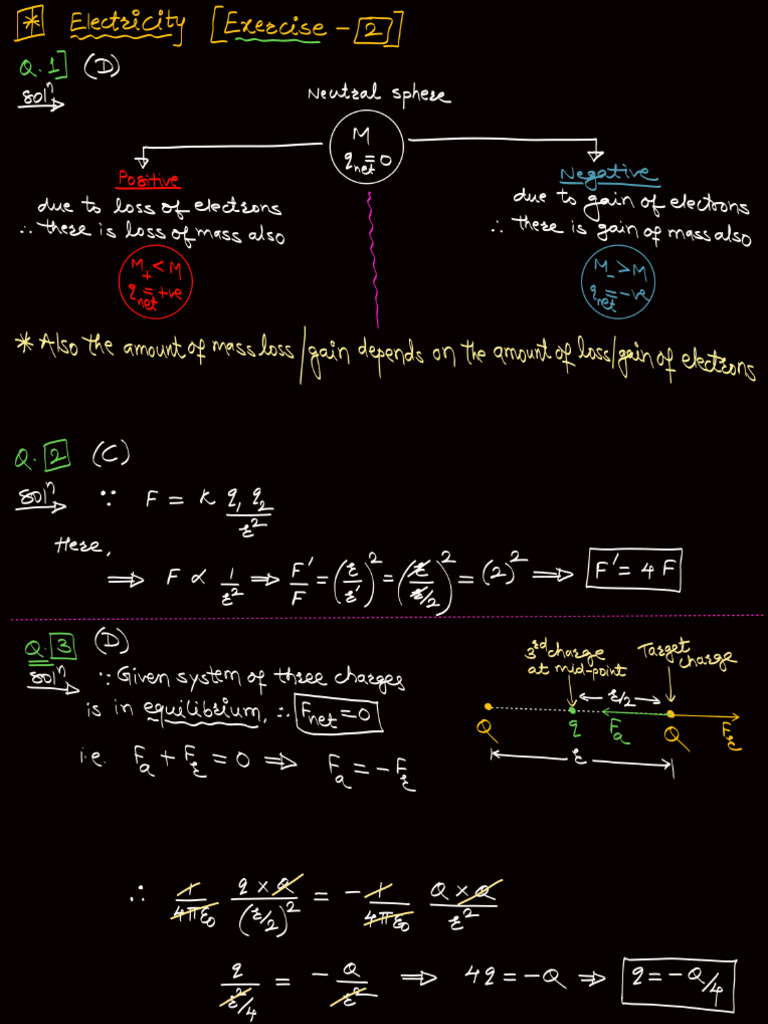 * Electricity [Exercise - 2]
Q.1] (D)
Solⁿ
Neutral sphere
M
q_net = 0
Positive
due to loss of electrons
∴ there is loss of mass also
M₊ < M
q_net = +ve
Negative
due to gain of electrons
∴ there is gain of mass also
M₋ > M
q_net = -ve
* Also the amount of mass loss/gain depends on the amount of loss/gain of electrons
Q. 2 (C)
Solⁿ ∵ F = K q₁ q₂ / r²
Here,
⟹ F ∝ 1/r² ⟹ F'/F = (r/r')² = (r/(r/2))² = (2)² ⟹ F' = 4F
Q. 3 (D)
Solⁿ ∵ Given system of three charges
is in equilibrium, ∴ F_net = 0
i.e. F_a + F_r = 0 ⟹ F_a = -F_r
3rd charge
at mid-point
Target
charge
r/2
Q q F_a Q F_r
r
∴ 1/4πε₀ q × Q / (r/2)² = - 1/4πε₀ Q × Q / r²
q / (r²/4) = - Q / r² ⟹ 4q = -Q ⟹ q = -Q/4